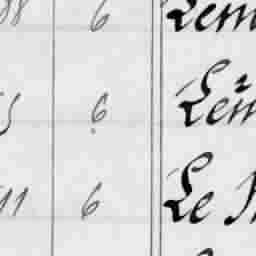 88 6 Lem
5 6 Lem
11 6 Le